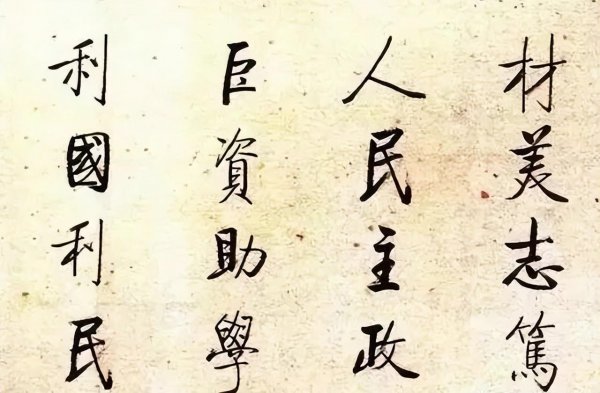 材美志篤
人民主政
巨資助學
利國利民